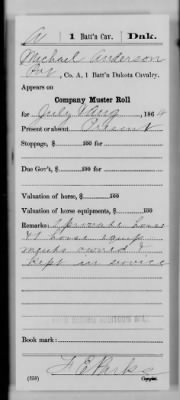 A | 1 Batt'n Cav. | Dak.
Michael Anderson
Pvt, Co. A, 1 Batt'n Dakota Cavalry.
Appears on
Company Muster Roll
for July & Aug, 1864
Present or absent Present
Stoppage, $ 100 for
Due Gov't, $ 100 for
Valuation of horse, $ 100
Valuation of horse equipments, $ 100
Remarks: 1 private horse
& 1 horse equip
ments owned &
kept in service
Book mark:
F E Parks
(358) Copyist.